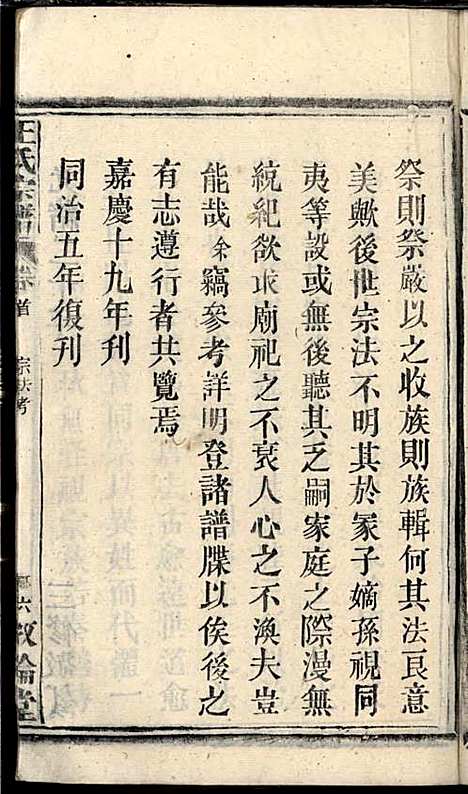 祭則祭嚴以之收族則族輯何其法良意
美歟後世宗法不明其於冢子嫡孫視同
夷等設或無後聽其乏嗣家庭之際漫無
統紀欲求廟祀之不衰人心之不渙夫豈
能哉余竊參考詳明登諸譜牒以俟後之
有志遵行者共覽焉
嘉慶十九年刊
同治五年復刊
王氏宗譜 卷首 宗法考 六 敘倫堂